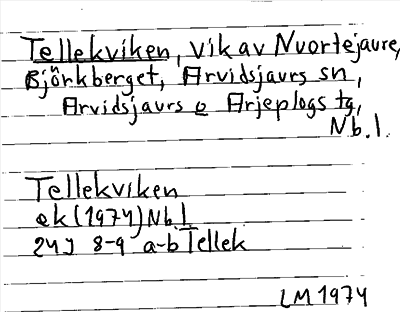 Tellekviken, vik av Nuortejaure,
Björkberget, Arvidsjaurs sn,
Arvidsjaurs o Arjeplogs tg,
Nb. l.
Tellekviken
ek (1974) Nb. l
24J 8-9 a-b Tellek
LM 1974